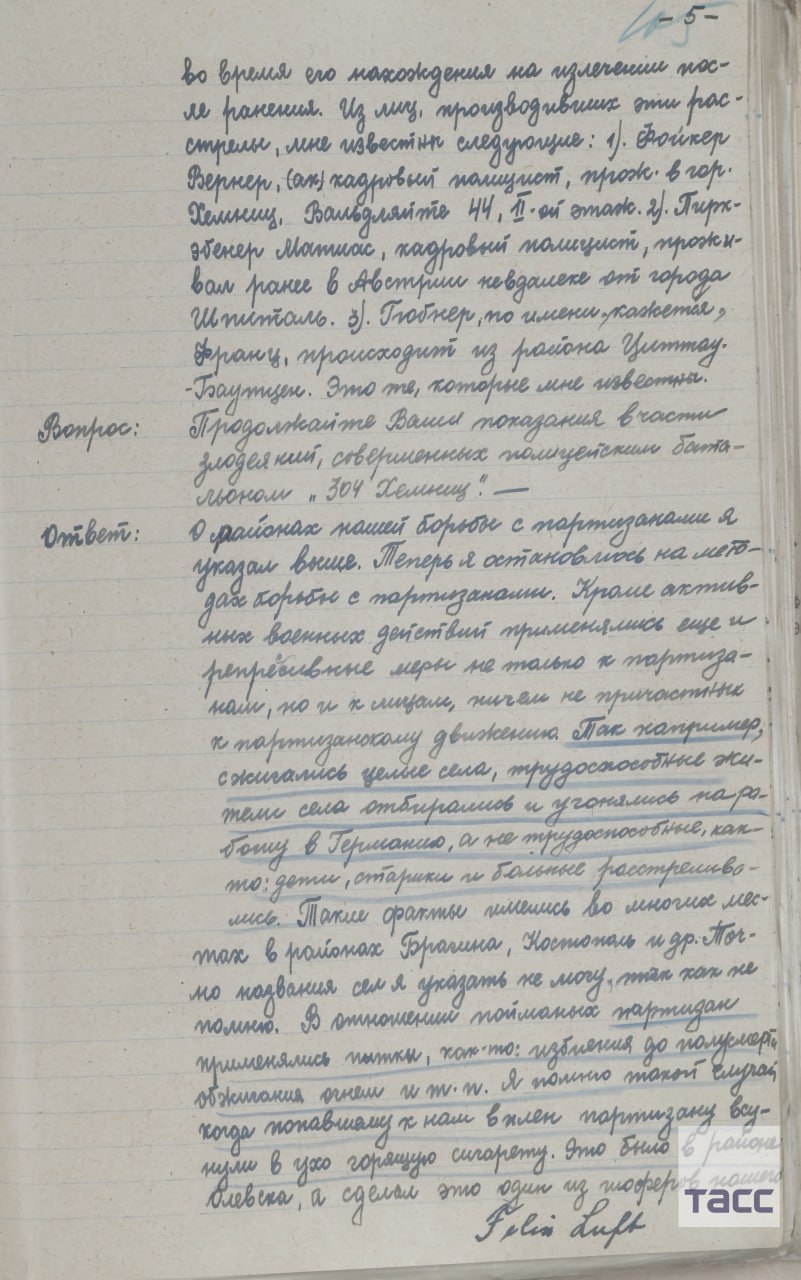 - 5 -
во время его нахождения на излечении пос-
ле ранения. Из лиц, производивших эти рас-
стрелы, мне известны следующие: 1). Фойкер
Вернер, (ах) кадровый полицист, прож. в гор.
Хемниц, Вальдляйте 44, II-ой этаж. 2). Пирк-
эбенер Матиас, кадровый полицист, прожи-
вал ранее в Австрии невдалеке от города
Шпиталь. 3). Гюбнер, по имени, кажется,
Франц, происходит из района Циттау-
-Баутцен. Это те, которые мне известны.
Вопрос: Продолжайте Ваши показания в части
злодеяний, совершенных полицейским бата-
льоном „304 Хемниц". —
Ответ: О районах нашей борьбы с партизанами я
указал выше. Теперь я остановлюсь на мето-
дах борьбы с партизанами. Кроме актив-
ных военных действий применялись еще и
репресивные меры не только к партиза-
нам, но и к лицам, ничем не причастных
к партизанскому движению. Так например,
сжигались целые села, трудоспособные жи-
тели села отбирались и угонялись на ра-
боту в Германию, а не трудоспособные, как-
то: дети, старики и больные расстрелива-
лись. Такие факты имелись во многих мес-
тах в районах Брагина, Костополь и др. Точ-
но названия сел я указать не могу, так как не
помню. В отношении пойманых партизан
применялись пытки, как-то: избиения до полусмерти
обжигания огнем и т. п. Я помню такой случай
когда попавшему к нам в плен партизану всу-
нули в ухо горящую сигарету. Это было в районе
Олевска, а сделал это один из шоферов нашего
Felix Luft
ТАСС